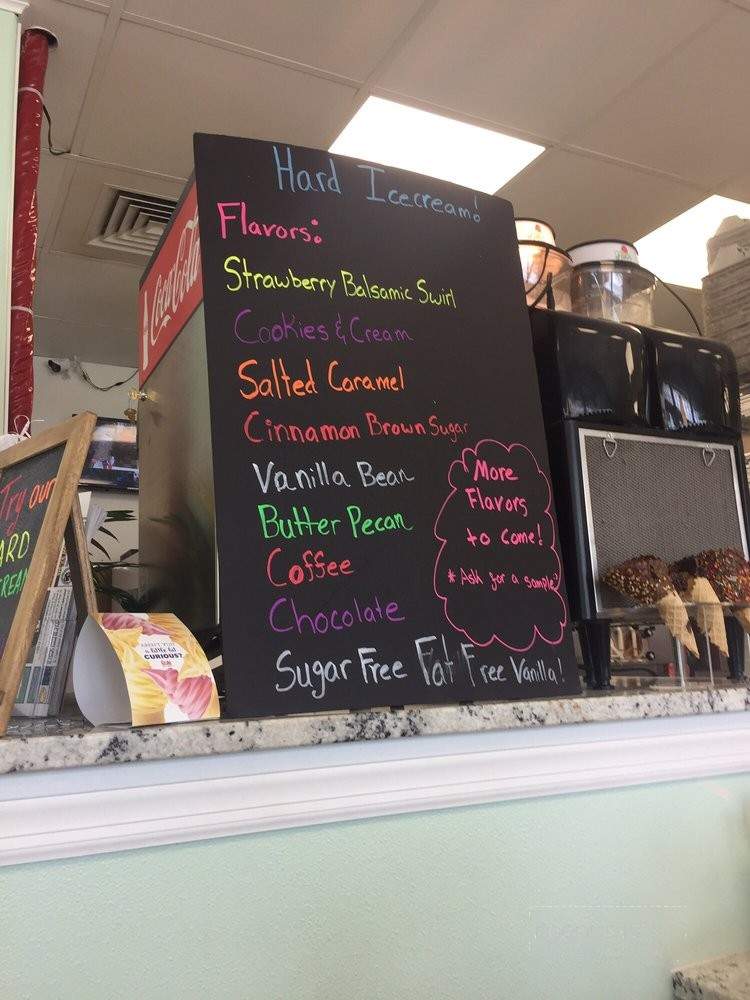 Hard Icecream!
Flavors:
Strawberry Balsamic Swirl
Cookies & Cream
Salted Caramel
Cinnamon Brown Sugar
Vanilla Bean
Butter Pecan
Coffee
Chocolate
Sugar Free Fat Free Vanilla!
More
Flavors
to come!
* Ask for a sample
Coca-Cola
Try our
ARD
CURIOUS?